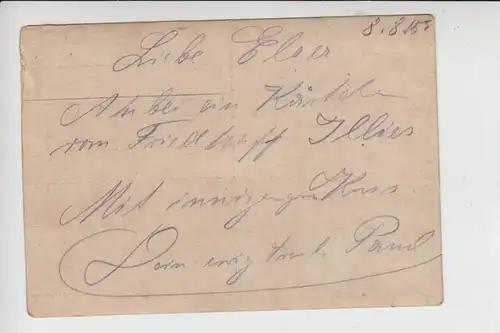 8.8.15.
Liebe
Anbei ein Kärtchen
vom Friedhof Illies
Mit innigem Kuss
Dein ewig treuer Paul